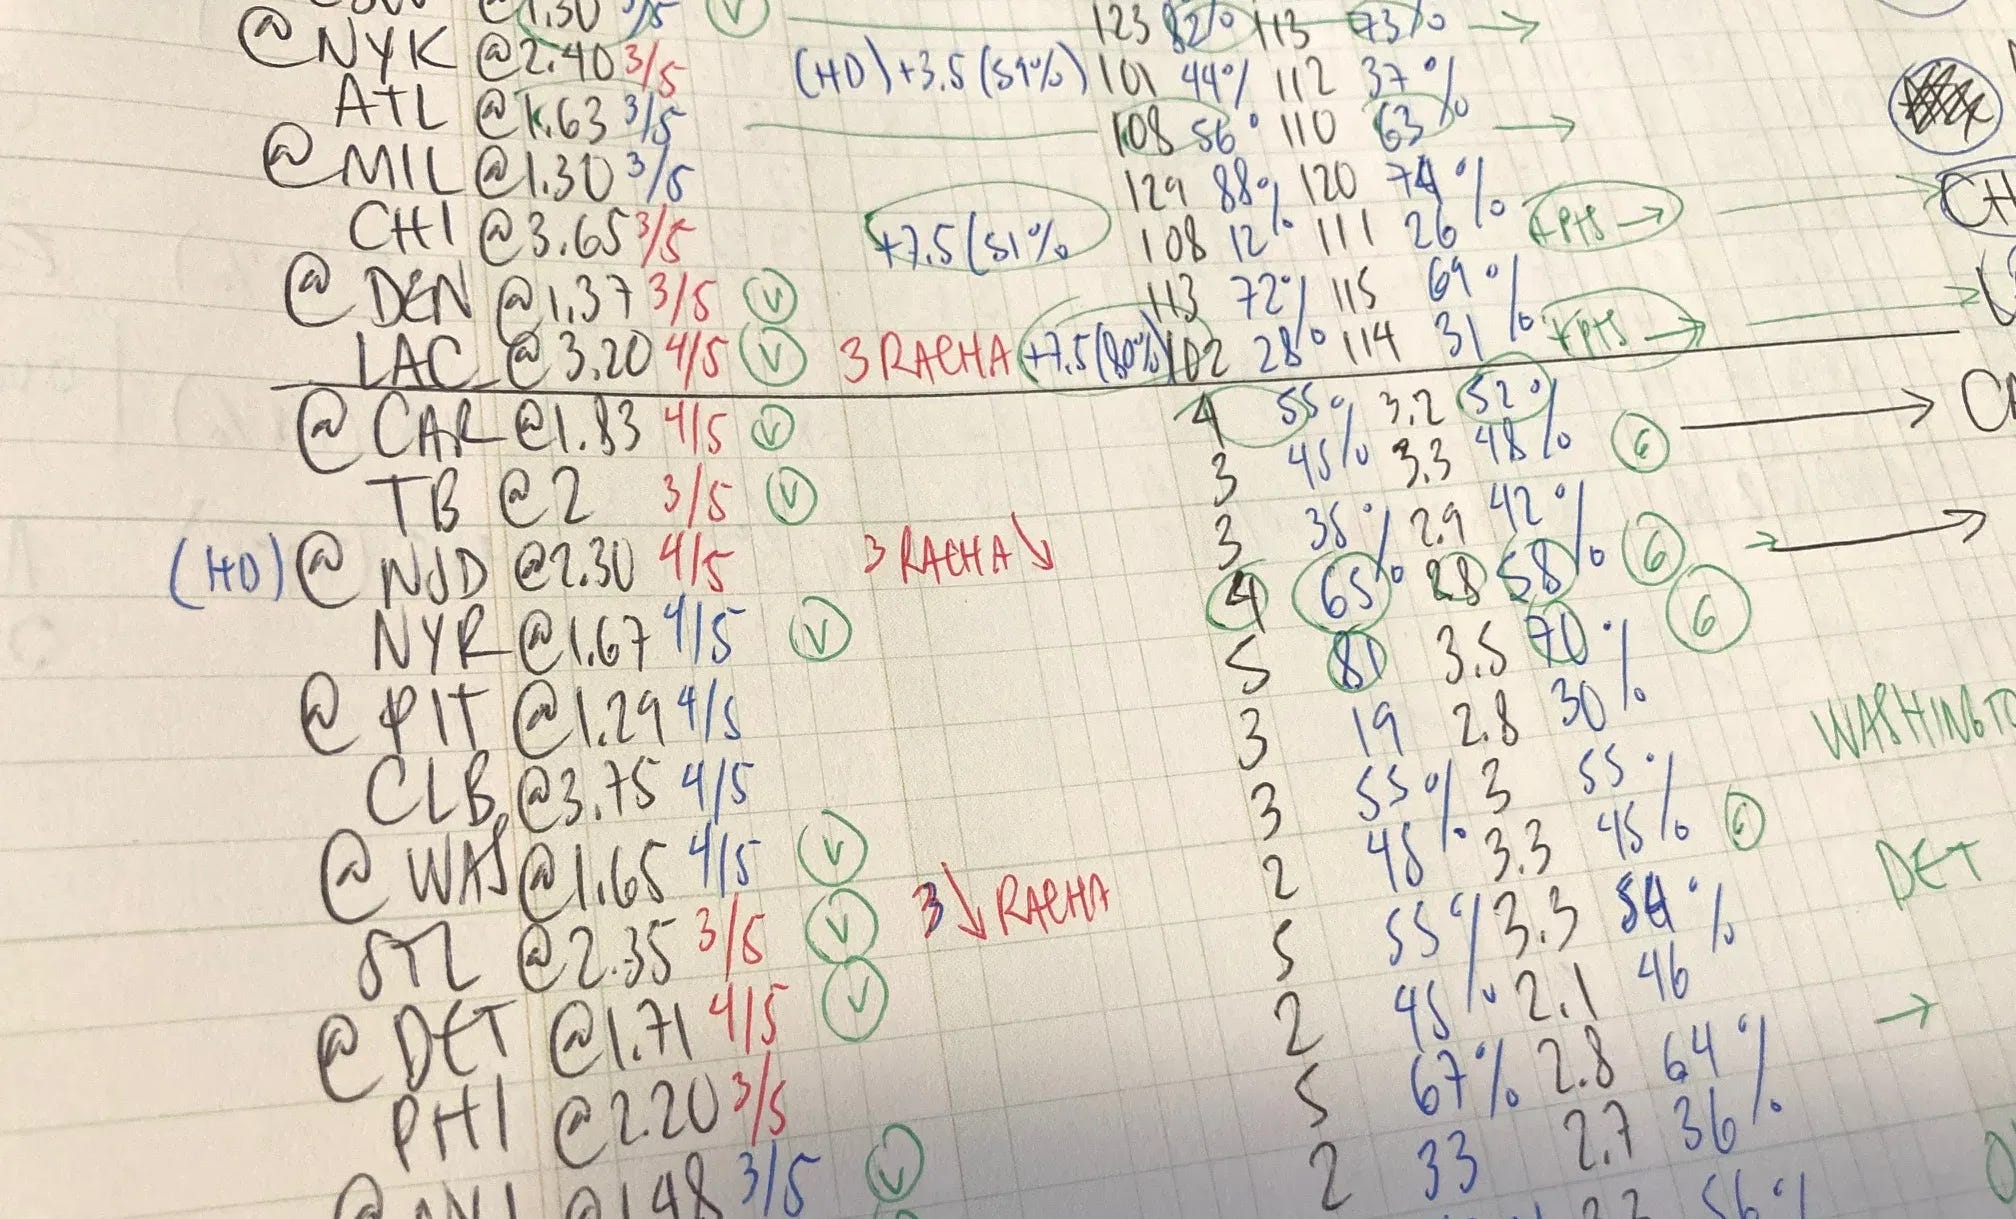 @1.30 3/5 V 123 82% 113 73% →
@NYK @2.40 3/5 (HD) +3.5 (59%) 101 44% 112 37%
ATL @1.63 3/5 108 56% 110 63% →
@MIL @1.30 3/5 129 88% 120 74%
CHI @3.65 3/5 +7.5 (51% 108 12% 111 26% +PTS → CH
@ DEN @1.37 3/5 V 113 72% 115 69%
LAC @3.20 4/5 V 3 RACHA +7.5 (80%) 102 28% 114 31% +PTS →
@ CAR @1.83 4/5 V 4 55% 3.2 52% → CA
TB @2 3/5 V 3 45% 3.3 48% 6
(HD) @ NJD @2.30 4/5 3 RACHA ↓ 3 35% 2.9 42% →
NYR @1.67 4/5 V 4 65% 2.8 58% 6
@ PIT @1.29 4/5 5 81 3.5 70% 6
CLB @3.75 4/5 3 19 2.8 30%
@ WAS @1.65 4/5 V 3 55% 3 55% WASHINGTO
STL @2.35 3/5 V 3 ↓ RACHA 2 45% 3.3 45% 6
@ DET @1.71 4/5 V 5 55% 3.3 54% DET
PHI @2.20 3/5 2 45% 2.1 46
@1.48 3/5 V 5 67% 2.8 64% →
2 33 2.7 36%
56%